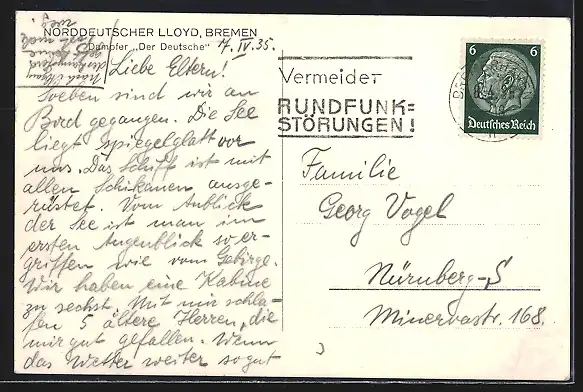 NORDDEUTSCHER LLOYD, BREMEN
Dampfer „Der Deutsche“
17. IV. 35.
Liebe Eltern!
Soeben sind wir an
Bord gegangen. Die See
liegt spiegelglatt vor
uns. Das Schiff ist mit
allen Schikanen ausge-
rüstet. Vom Anblick
der See ist man im
ersten Augenblick so er-
griffen wie vom Gebirge.
Wir haben eine Kabine
zu sechst. Mit mir schla-
fen 5 ältere Herren, die
mir gut gefallen. Wenn
das Wetter weiter so gut
Vermeidet
RUNDFUNK=
STÖRUNGEN!
6 6
Deutsches Reich
Familie
Georg Vogel
Nürnberg-S
Minervastr. 168.